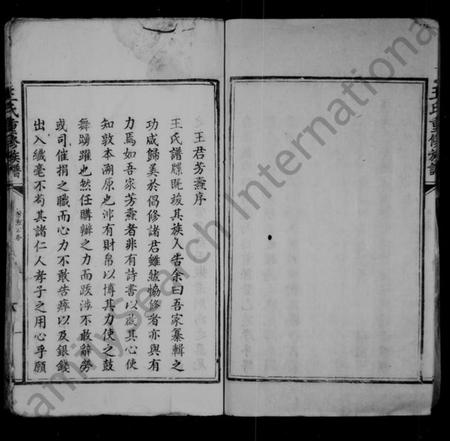 王君芳薰序
王氏譜牒既竣其族人告余曰吾家纂輯之
功咸歸美於倡修諸君雖然恊修者亦與有
力焉如吾家芳薰者非有詩書以啟其心使
知敦本溯原也非有財帛以博其力使之鼓
舞踴躍也然任購辦之力而跋涉不敢辭勞
或司催捐之職而心力不敢告瘁以及銀錢
出入纖毫不苟其諸仁人孝子之用心乎願
王氏重修族譜
王氏重修族譜
FamilySearch International